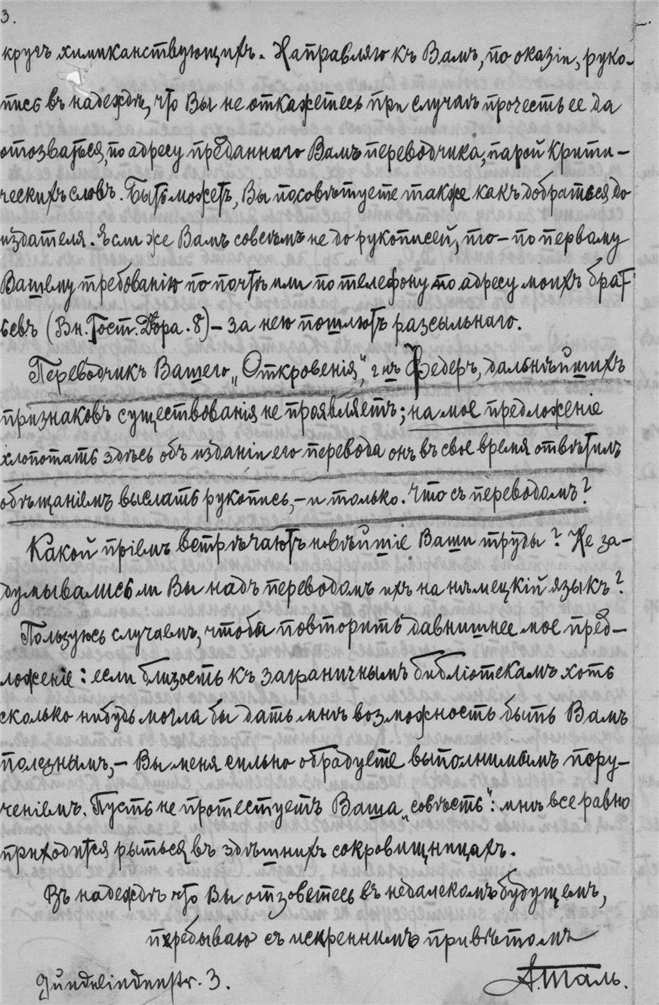 3.
кругъ химиканствующихъ. Направляю къ Вамъ, по оказіи, руко-
пись въ надеждѣ, что Вы не откажетесь при случаѣ прочесть ее да
отозваться, по адресу преданнаго Вамъ переводчика, парой крити-
ческихъ словъ. Быть можетъ, Вы посовѣтуете также какъ добраться до
издателя. Если же Вамъ совсѣмъ не до рукописей, то – по первому
Вашему требованію по почтѣ или по телефону по адресу моихъ брать
евъ (Вн. Гост. Двора. 8) – за нею пошлютъ разсыльнаго.
Переводчикъ Вашего „Откровенія“, г-нъ Федеръ, дальнѣйшихъ
признаковъ существованія не проявляетъ; на мое предложеніе
хлопотать здѣсь объ изданіи его перевода онъ въ свое время отвѣтилъ
обѣщаніемъ выслать рукопись, – и только. Что съ переводомъ?
Какой пріемъ встрѣчаютъ новѣйшіе Ваши труды? Не за-
думывались ли Вы надъ переводомъ ихъ на нѣмецкій языкъ?
Пользуюсь случаемъ, чтобы повторить давнишнее мое пред-
ложеніе: если близость къ заграничнымъ библіотекамъ хоть
сколько нибудь могла бы дать мнѣ возможность быть Вамъ
полезнымъ, – Вы меня сильно обрадуете выполнимымъ пору-
ченіемъ. Пусть не протестуетъ Ваша „совѣсть“: мнѣ все равно
приходится рыться въ здѣшнихъ сокровищницахъ.
Въ надеждѣ что Вы отзоветесь въ недалекомъ будущемъ,
пребываю съ искреннимъ привѣтомъ
Gundelindenstr. 3.
А. Таль.